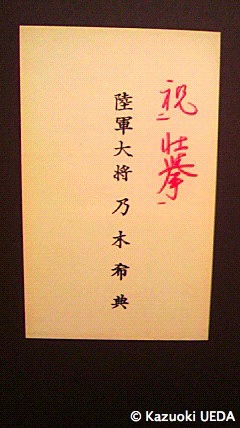 祝 壮挙
陸軍大将 乃木希典
© Kazuoki UEDA